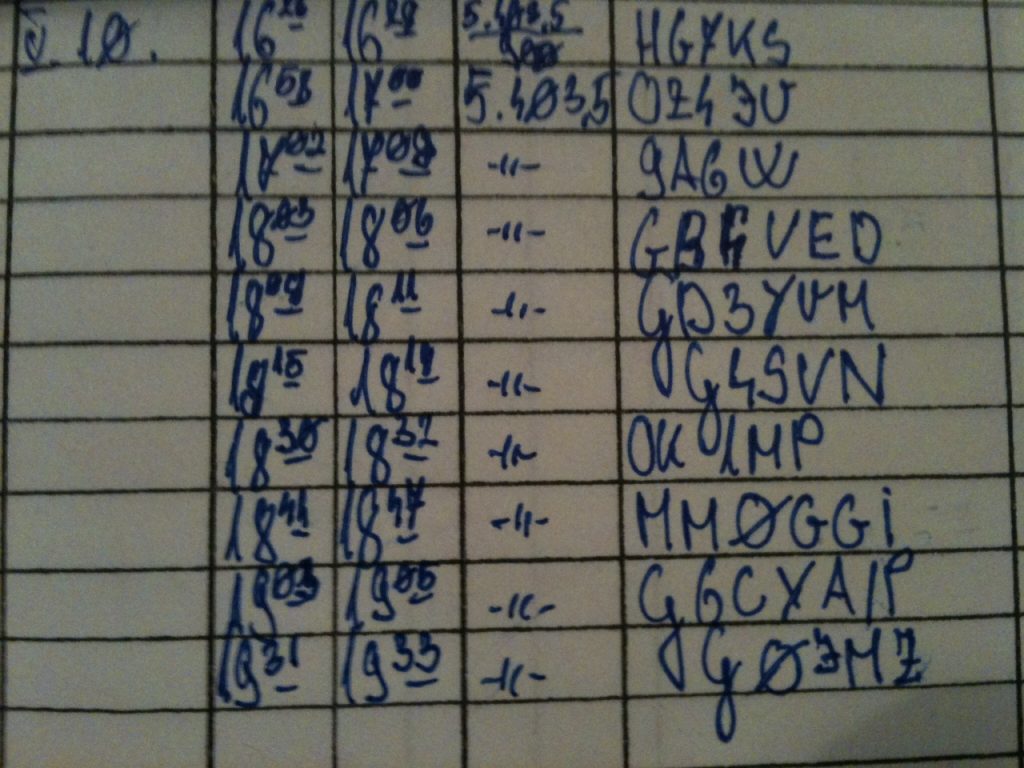 V. 10. 16 26 16 29 5.403,5 HG7KS
16 58 17 00 5.403,5 OZ4 JU
17 02 17 09 -11- 9A6W
18 03 18 06 -11- GB4VED
18 09 18 11 -11- GD3YUM
18 15 18 19 -11- G4SVN
18 30 18 32 -11- OK1MP
18 44 18 47 -11- MM0GGI
19 03 19 06 -11- G6CXA/P
19 31 19 33 -11- G0JMZ